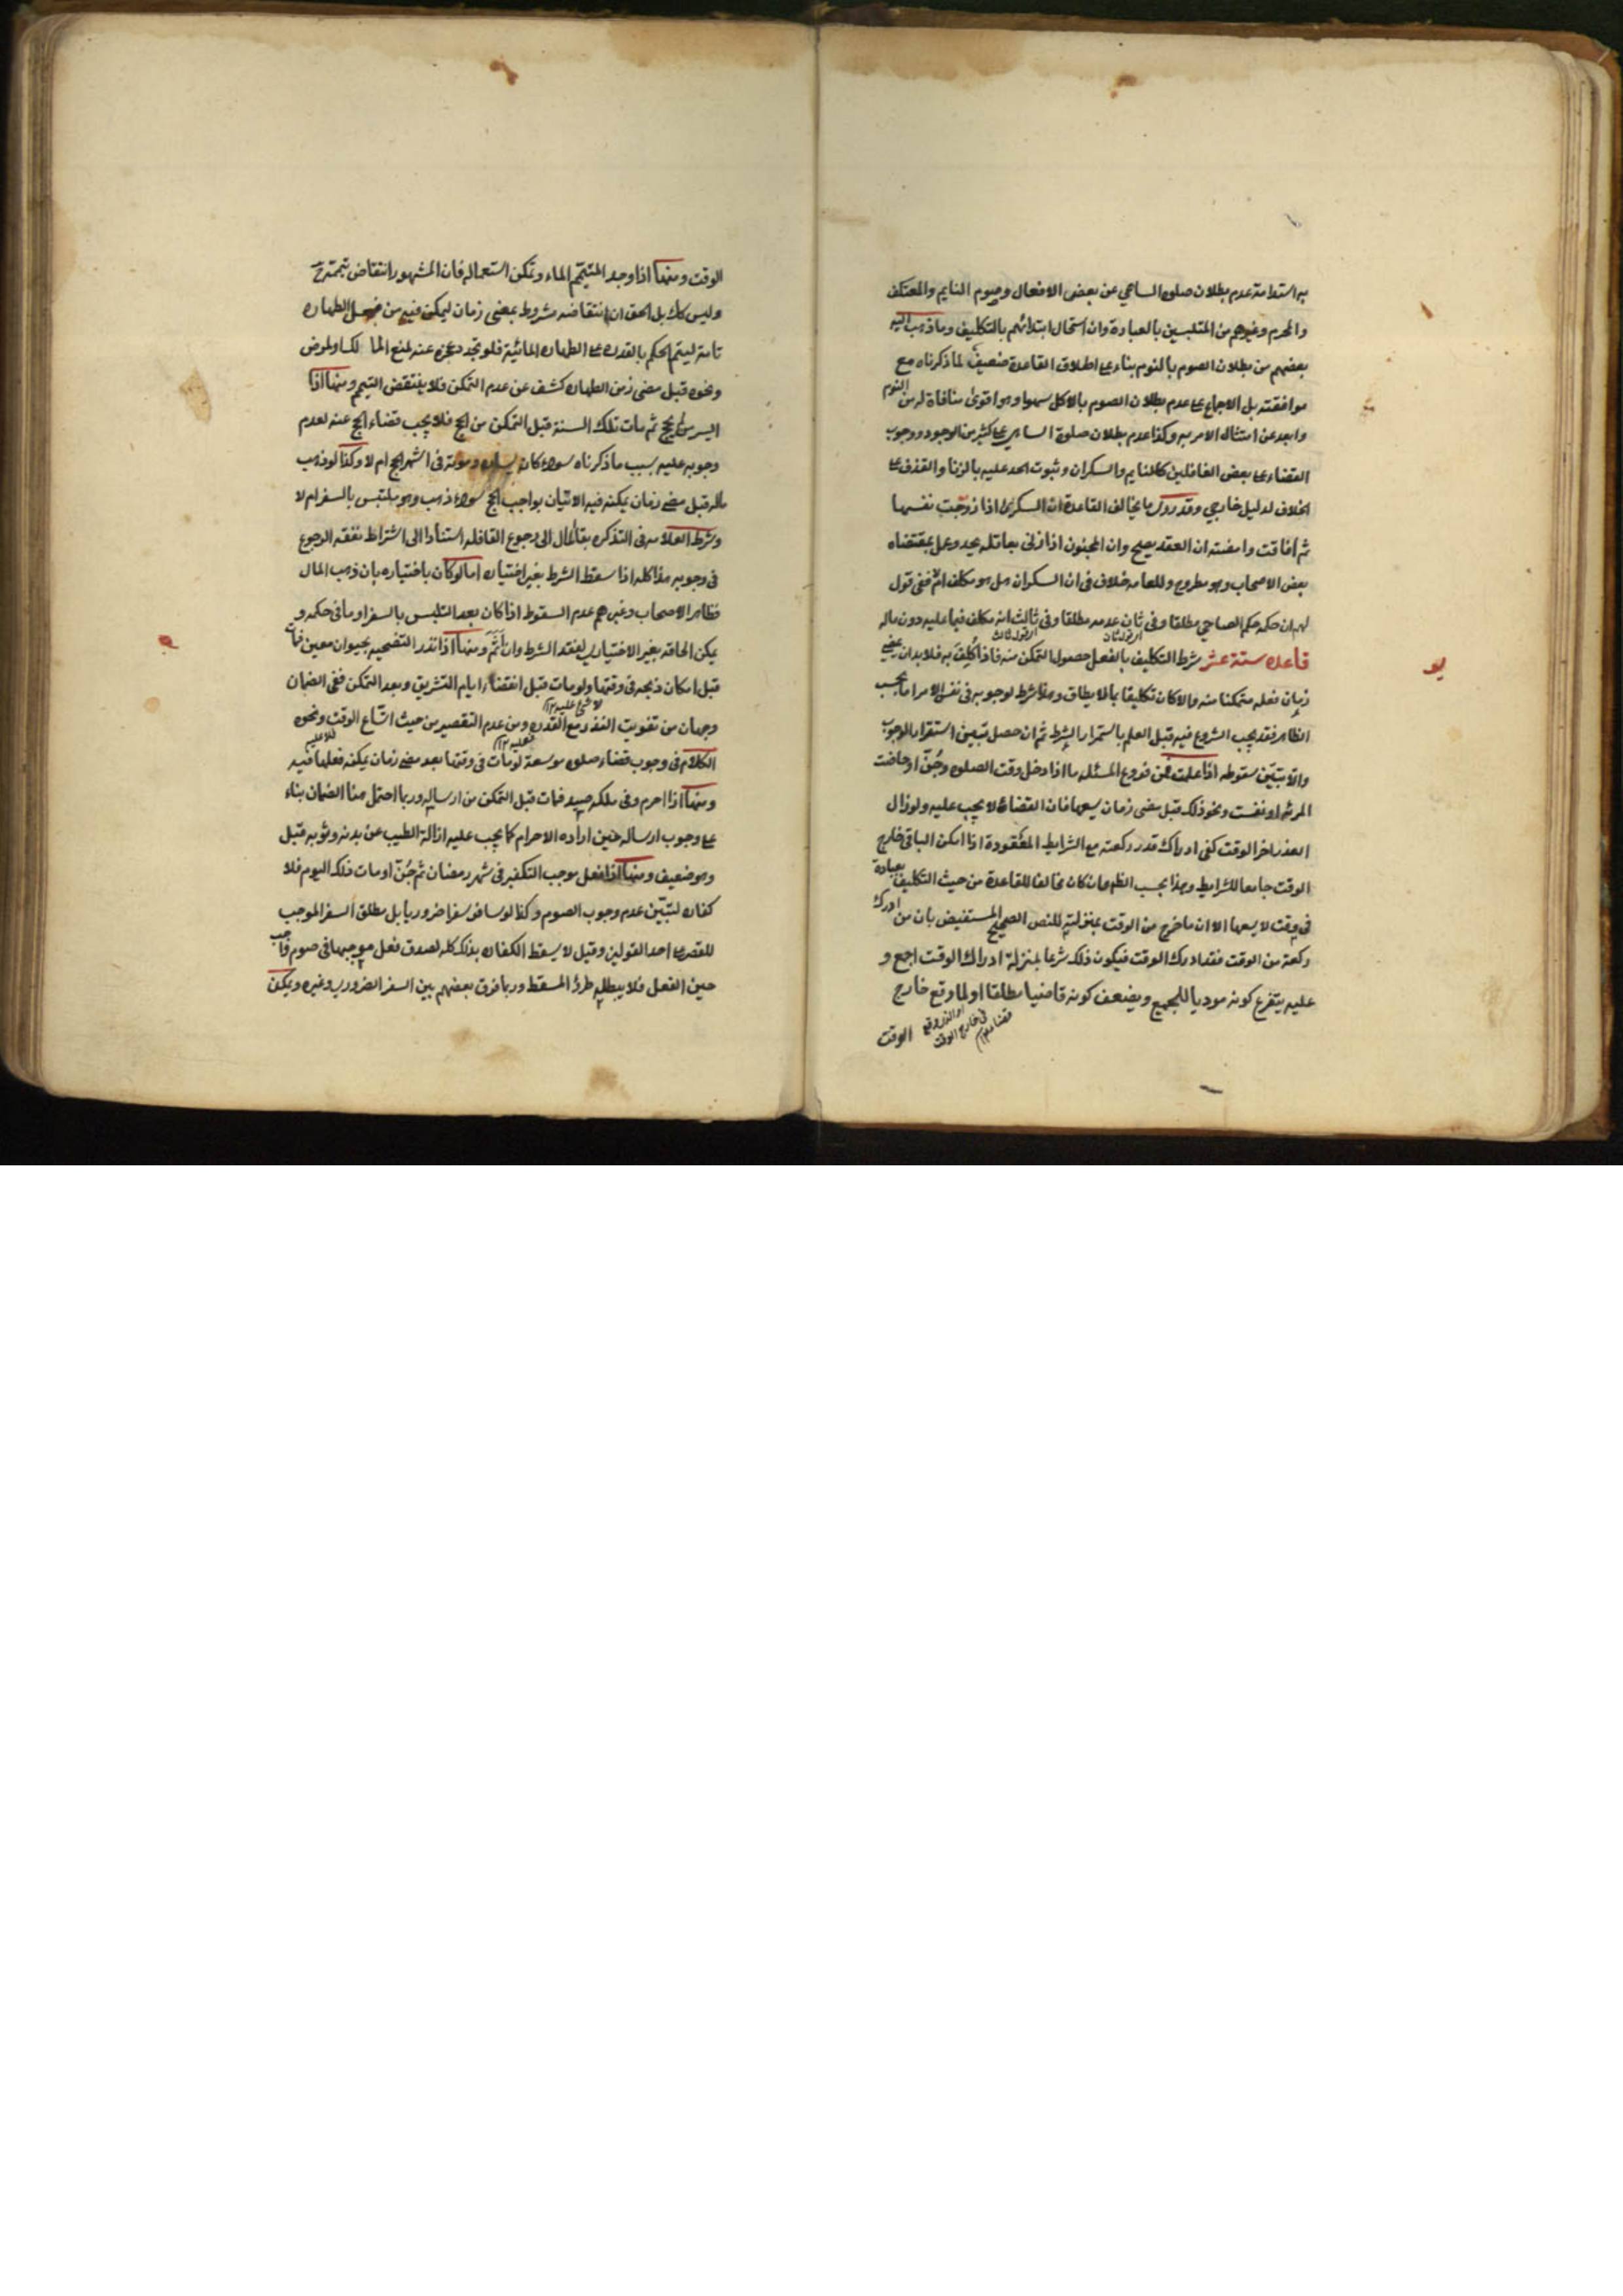 به استدامة عدم بطلان صلوة الساهي عن بعض الافعال وصوم النايم والمعتكف
والمحرم وغيرهم من المتلبسين بالعبادة وان استحال ابتدائهم بالتكليف وما ذهب اليه
بعضهم من بطلان الصوم بالنوم بناء على اطلاق القاعدة ضعيف لما ذكرناه مع
موافقته بل الاجماع على عدم بطلان الصوم بالاكل سهوا وهو اقوى منافاة له من النوم
وابعد عن امتثال الامر به وكذا عدم بطلان صلوة الساهي على كثير من الوجوه ووجوب
القضاء على بعض الغافلين كالنايم والسكران وثبوت الحد عليه بالزنا والقذف على
الخلاف لدليل خارجي وقد روى ما يخالف القاعدة ان السكرى اذا زوجت نفسها
ثم افاقت وامضته ان العقد يصح وان المجنون اذا زنى بعاقله يحد وعمل بمقتضاه
بعض الاصحاب وهو مطروح وللعامه خلاف في ان السكران هل هو مكلف ام لا ففي قول
لهم ان حكمه حكم الصاحي مطلقا وفي ثان عدمه مطلقا وفي ثالث انه مكلف فيما عليه دون ماله
قاعده ستة عشر شرط التكليف بالفعل حصول التمكن منه فاذا كلف به فلا بد ان يمضي
زمان فعله متمكنا منه والا كان تكليفا بما لا يطاق وهذا شرط لوجوبه في نفس الامر اما بحسب
الظاهر فقد يجب الشروع فيه قبل العلم باستمرار الشرط ثم ان حصل تبين استقرار الوجوب
والا تبين سقوطه اذا علمت فمن فروع المسئله ما اذا دخل وقت الصلوه وجن او حاضت
المرئه او نفست ونحو ذلك قبل مضى زمان يسعها فان القضاء لا يجب عليه ولو زال
العذر اخر الوقت كفى ادراك قدر ركعته مع الشرايط المفقودة اذا امكن الباقي خارج
الوقت جامعا للشرايط وهذا بحسب الظهر وان كان مخالفا للقاعدة من حيث التكليف بعبادة
في وقت لا يسعها الا ان ما خرج من الوقت بمنزلته للنص الصحيح المستفيض بان من ادرك
ركعة من الوقت فقد ادرك الوقت فيكون ذلك شرعا بمنزلة ادراك الوقت اجمع و
عليه يتفرع كونه موديا للجميع ويضعف كونه قاضيا مطلقا او لما وقع خارج
الوقت
الوقت ومنها اذا وجد المتيمم الماء وتمكن استعماله فان المشهور انتقاض تيممه ح
وليس كك بل الحق ان انتقاضه مشروط بمضى زمان ليمكن فيه من فعل الطهاره
تامة ليتم الحكم بالقدره على الطهاره المائية فلو تجدد عجزه عنه لمنع المالك او لمرض
ونحوه قبل مضى زمن الطهاره كشف عن عدم التمكن فلا ينتقض التيمم ومنها اذا
ايسر من لم يحج ثم مات تلك السنة قبل التمكن من الحج فلا يجب قضاء الحج عنه لعدم
وجوبه عليه بسبب ما ذكرناه سواء كان يساره وموته في اشهر الحج ام لا وكذا لو ذهب
ماله قبل مضى زمان يمكنه فيه الاتيان بواجب الحج سواء ذهب وهو ملتبس بالسفر ام لا
وشرط العلامه في التذكره بقاء المال الى رجوع القافله استنادا الى اشتراط نفقة الرجوع
في وجوبه هذا كله اذا سقط الشرط بغير اختياره اما لو كان باختياره بان ذهب المال
فظاهر الاصحاب وغيرهم عدم السقوط اذا كان بعد التلبس بالسفر او ما في حكمه و
يمكن الحاقه بغير الاختياري لفقد الشرط وان اثم ومنها اذا نذر التضحيه بحيوان معين فمات
قبل امكان ذبحه في وقتها ولو مات قبل انقضاء ايام التشريق وبعد التمكن ففي الضمان
وجهان من تفويت النذر مع القدره ومن عدم التقصير من حيث اتساع الوقت ونحوه
الكلام في وجوب قضاء صلوه موسعة لو مات في وقتها بعد مضى زمان يمكنه فعلها فيه
ومنها اذا احرم وفي ملكه صيد فمات قبل التمكن من ارساله وربما احتمل هنا الضمان بناء
على وجوب ارساله حين اراده الاحرام كما يجب عليه ازالة الطيب عن بدنه وثوبه قبل
وهو ضعيف ومنها اذا فعل موجب التكفير في شهر رمضان ثم جن او مات ذلك اليوم فلا
كفاره لتبين عدم وجوب الصوم وكذا لو سافر سفرا ضروريا بل مطلق السفر الموجب
للقصر على احد القولين وقيل لا يسقط الكفاره بذلك كله لصدق فعل موجبها في صوم واجب
حين الفعل فلا يبطله طرؤ المسقط وربما فرق بعضهم بين السفر الضروري وغيره ويمكن